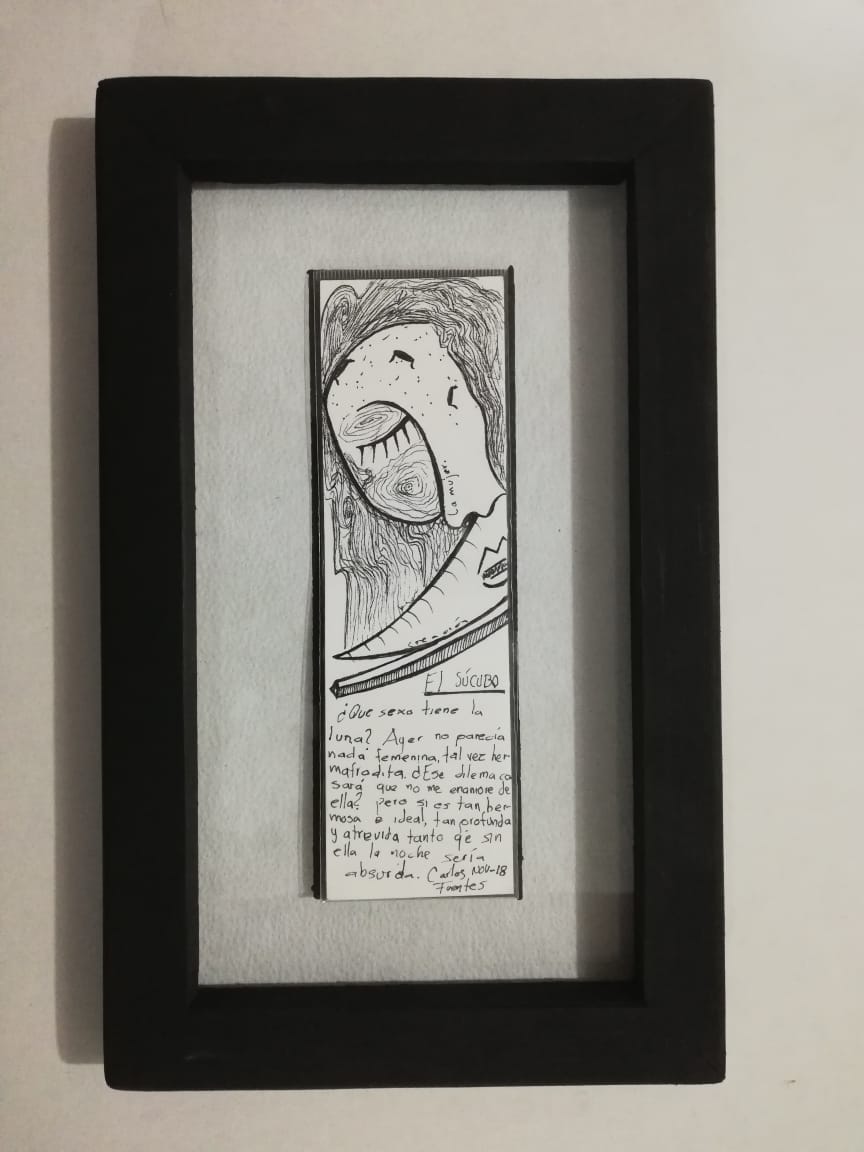 La mujer.
creación
El SÚCUBO
¿Que sexo tiene la
luna? Ayer no parecía
nada femenina, tal vez her-
mafrodita. ¿Ese dilema ca
sará que no me enamore de
ella? pero si es tan her-
mosa e ideal, tan profunda
y atrevida tanto qe sin
ella la noche sería
absurda. Carlos, NOV-18
Fuentes